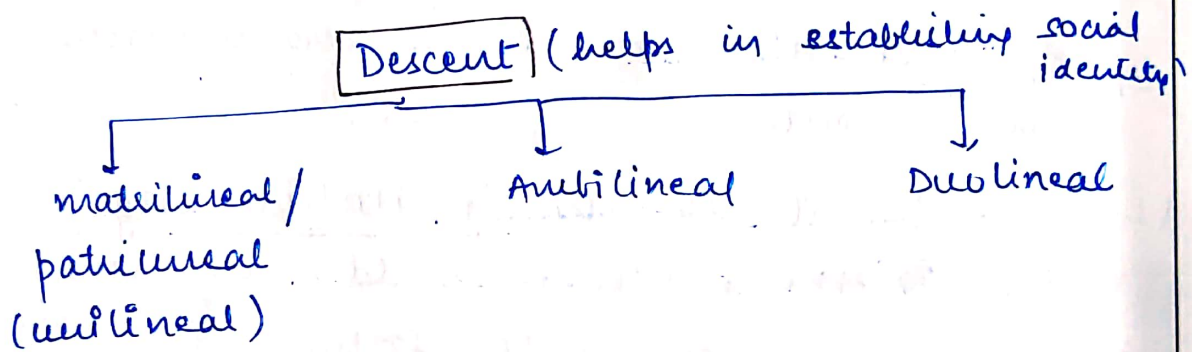 Descent (helps in establishing social
identity)
matrilineal/ Ambilineal Duolineal
patrilineal
(unilineal)